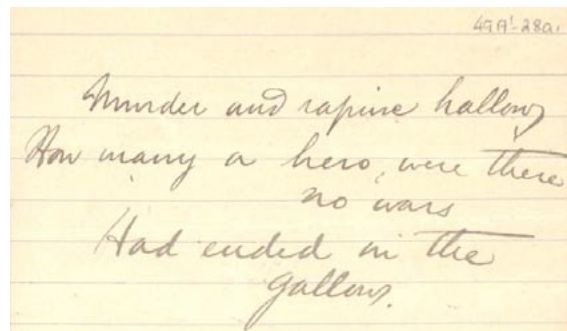 49A'-28a.
Murder and rapine hallow,
How many a hero, were there
no wars
Had ended in the
gallows.